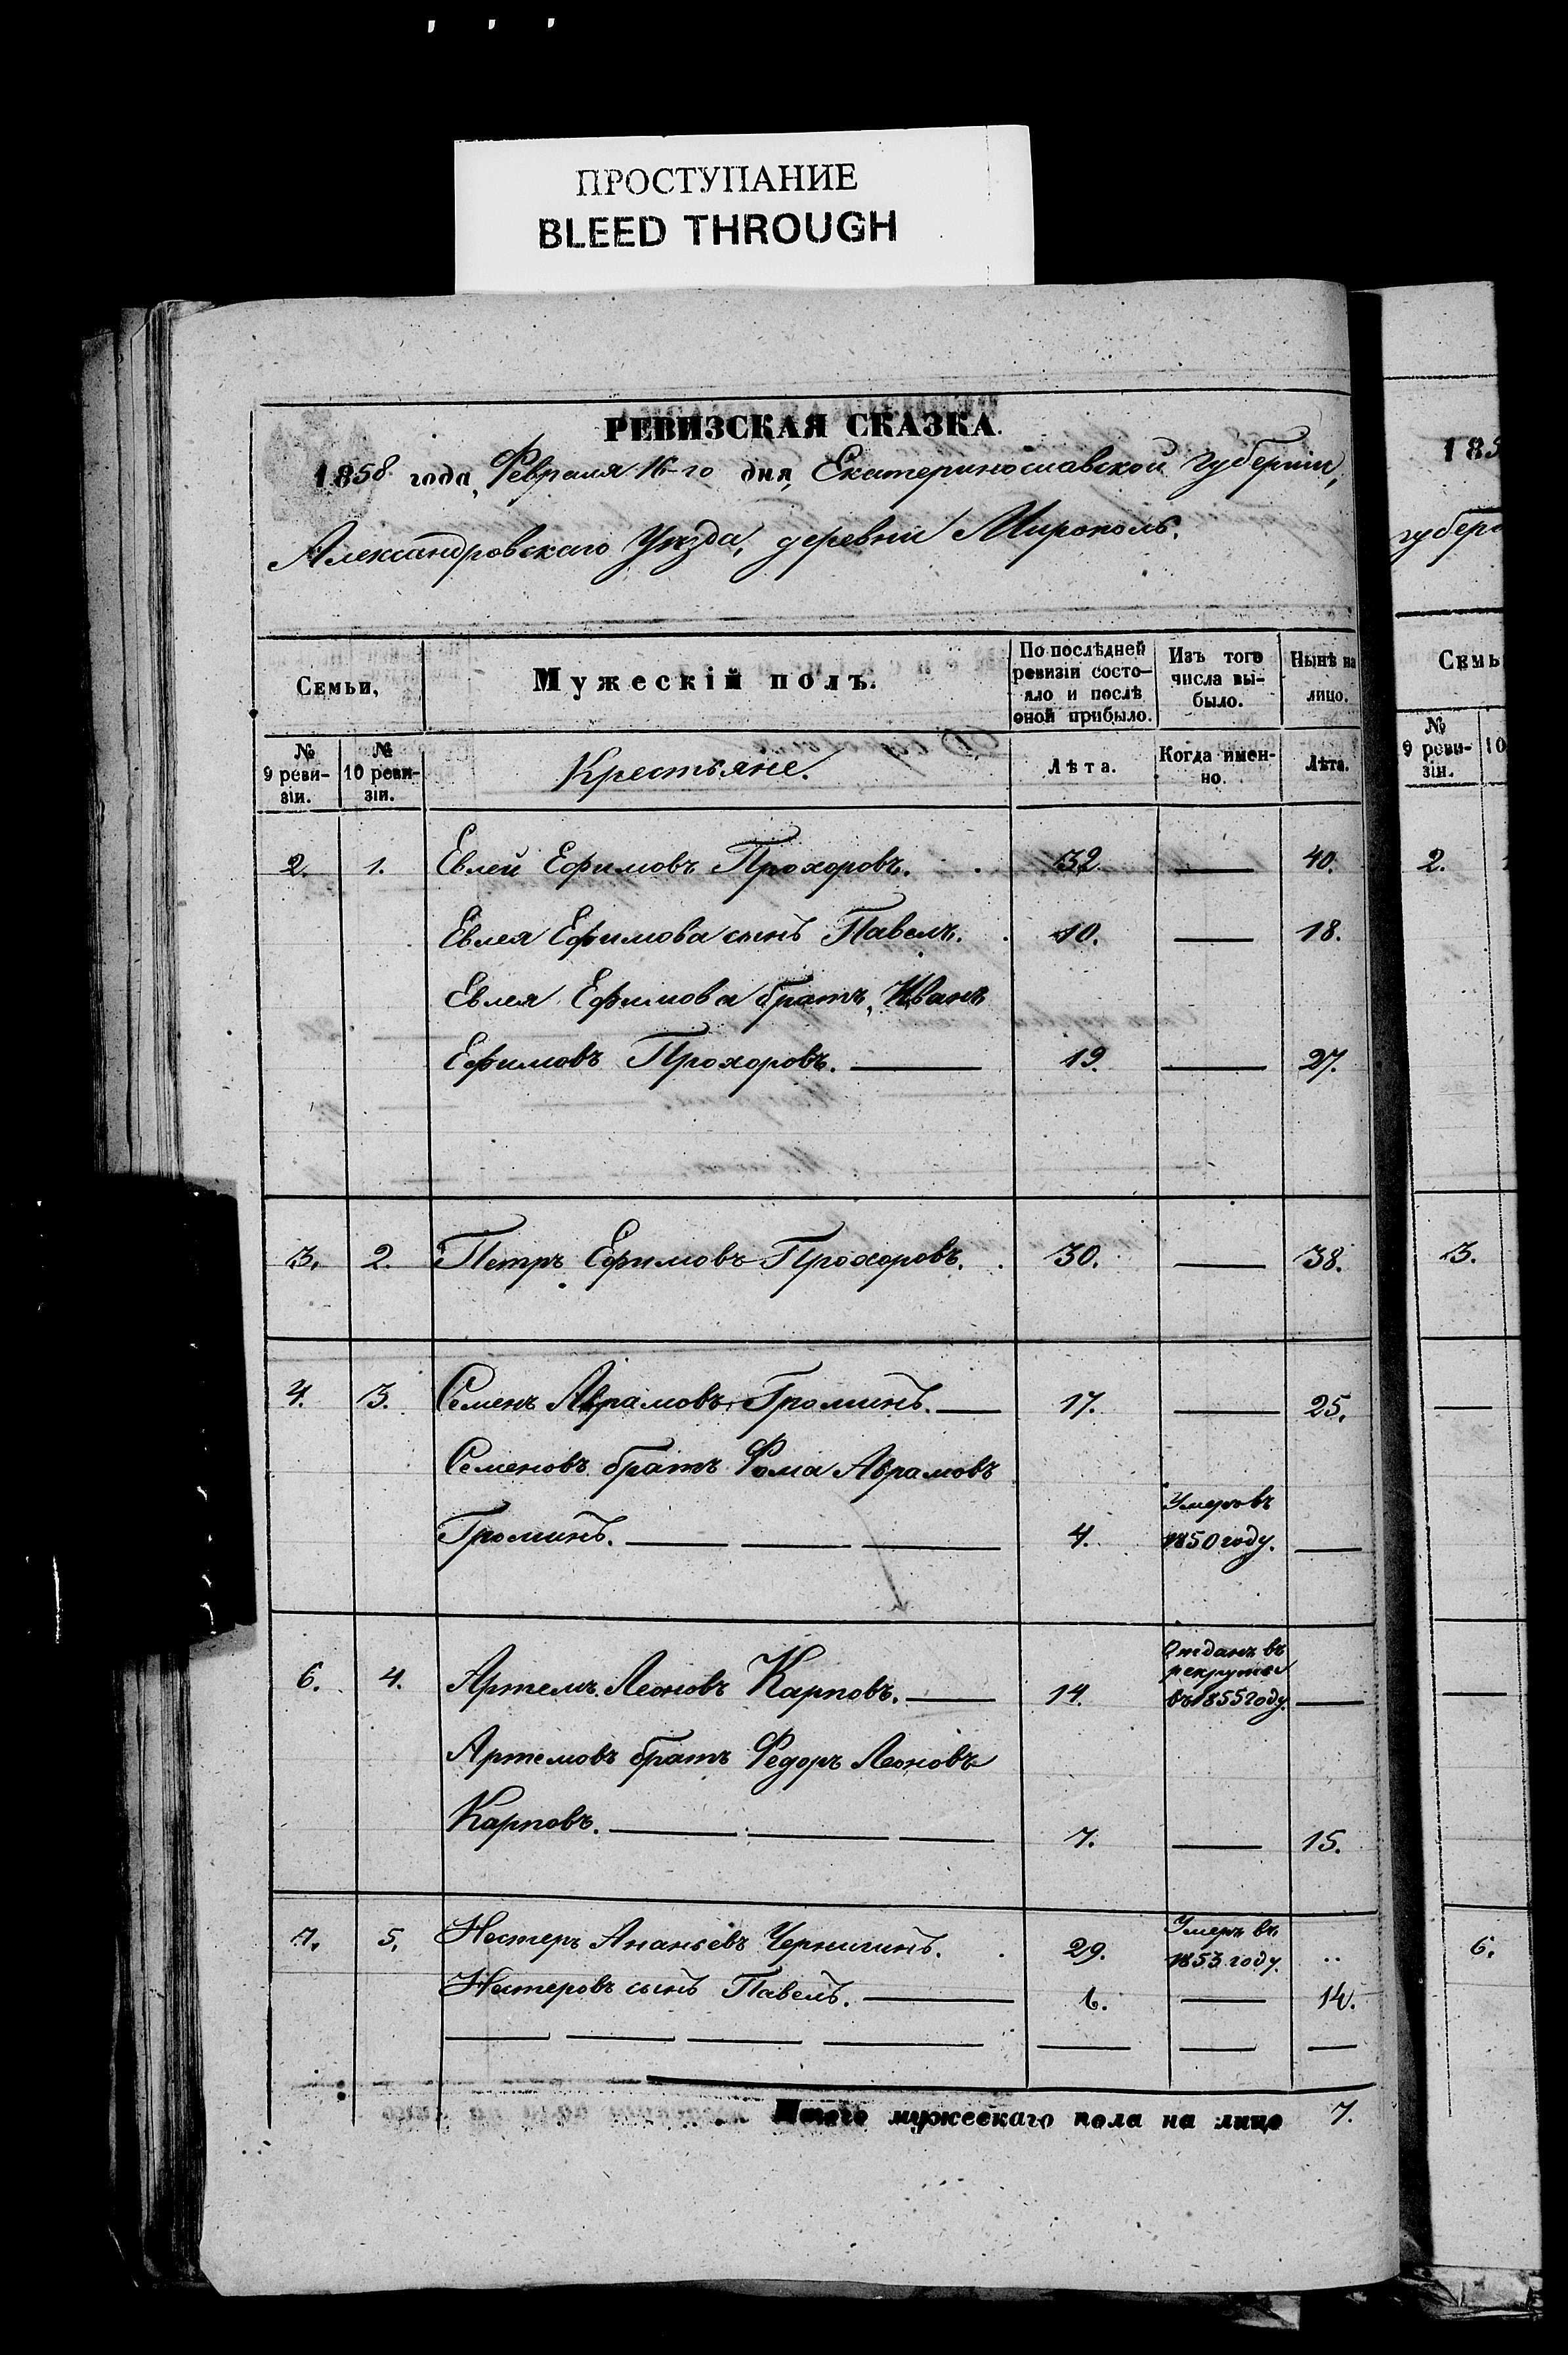 ПРОСТУПАНИЕ
BLEED THROUGH
РЕВИЗСКАЯ СКАЗКА.
1858 года, Февраля 16-го дня, Екатеринославской Губернiи,
Александровскаго Уѣзда, деревни Мирополь.
Семьи,
Мужескiй полъ.
По послѣдней ревизiи состояло и послѣ оной прибыло.
Изъ того числа выбыло.
Нынѣ на лицо.
№ 9 ревизiи.
№ 10 ревизiи.
Крестьяне.
Лѣта.
Когда именно.
Лѣта.
2. 1. Евлей Ефимовъ Прохоровъ. 32 — 40.
Евлея Ефимова сынъ Павелъ. 10. — 18.
Евлея Ефимова братъ, Иванъ
Ефимовъ Прохоровъ. — 19. — 27.
3. 2. Петръ Ефимовъ Прохоровъ. 30. — 38.
4. 3. Семенъ Аврамовъ Громинъ. — 17. — 25.
Семеновъ братъ Фома Аврамовъ
Громинъ. — 4. Умеръ въ 1850 году. —
6. 4. Артемъ Леоновъ Карповъ. — 14. Отданъ въ рекруты въ 1855 году. —
Артемовъ братъ Федоръ Леоновъ
Карповъ. — 7. — 15.
7. 5. Нестеръ Ананьевъ Чернигинъ. 29. Умеръ въ 1853 году. ..
Нестеровъ сынъ Павелъ. — 6. — 14.
Итого мужескаго пола на лицо 7.
185
губерн
Семь
№ 9 ревизiи.
10
2.
3.
6.